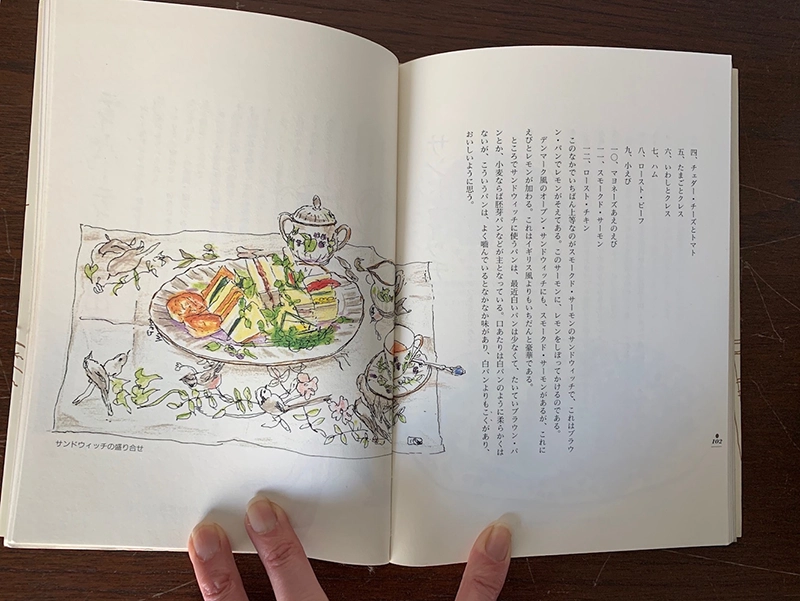 四、チェダー・チーズとトマト
五、たまごとクレス
六、いわしとクレス
七、ハム
八、ロースト・ビーフ
九、小えび
一〇、マヨネーズあえのえび
一一、スモークド・サーモン
一二、ロースト・チキン
このなかでいちばん上等なのがスモークド・サーモンのサンドウィッチで、これはブラウ
ン・パンでレモンがそえてある。このサーモンに、レモンをしぼってかけるのである。
デンマーク風のオープン・サンドウィッチにも、スモークド・サーモンがあるが、これに
えびとレモンが加わる。これはイギリス風よりもいちだんと豪華である。
ところでサンドウィッチに使うパンは、最近白いパンは少なくて、たいていブラウン・パ
ンとか、小麦ならば胚芽パンなどが主となっている。口あたりは白パンのように柔らかくは
ないが、こういうパンは、よく嚙んでいるとなかなか味があり、白パンよりもこくがあり、
おいしいように思う。
102
サンドウィッチの盛り合せ